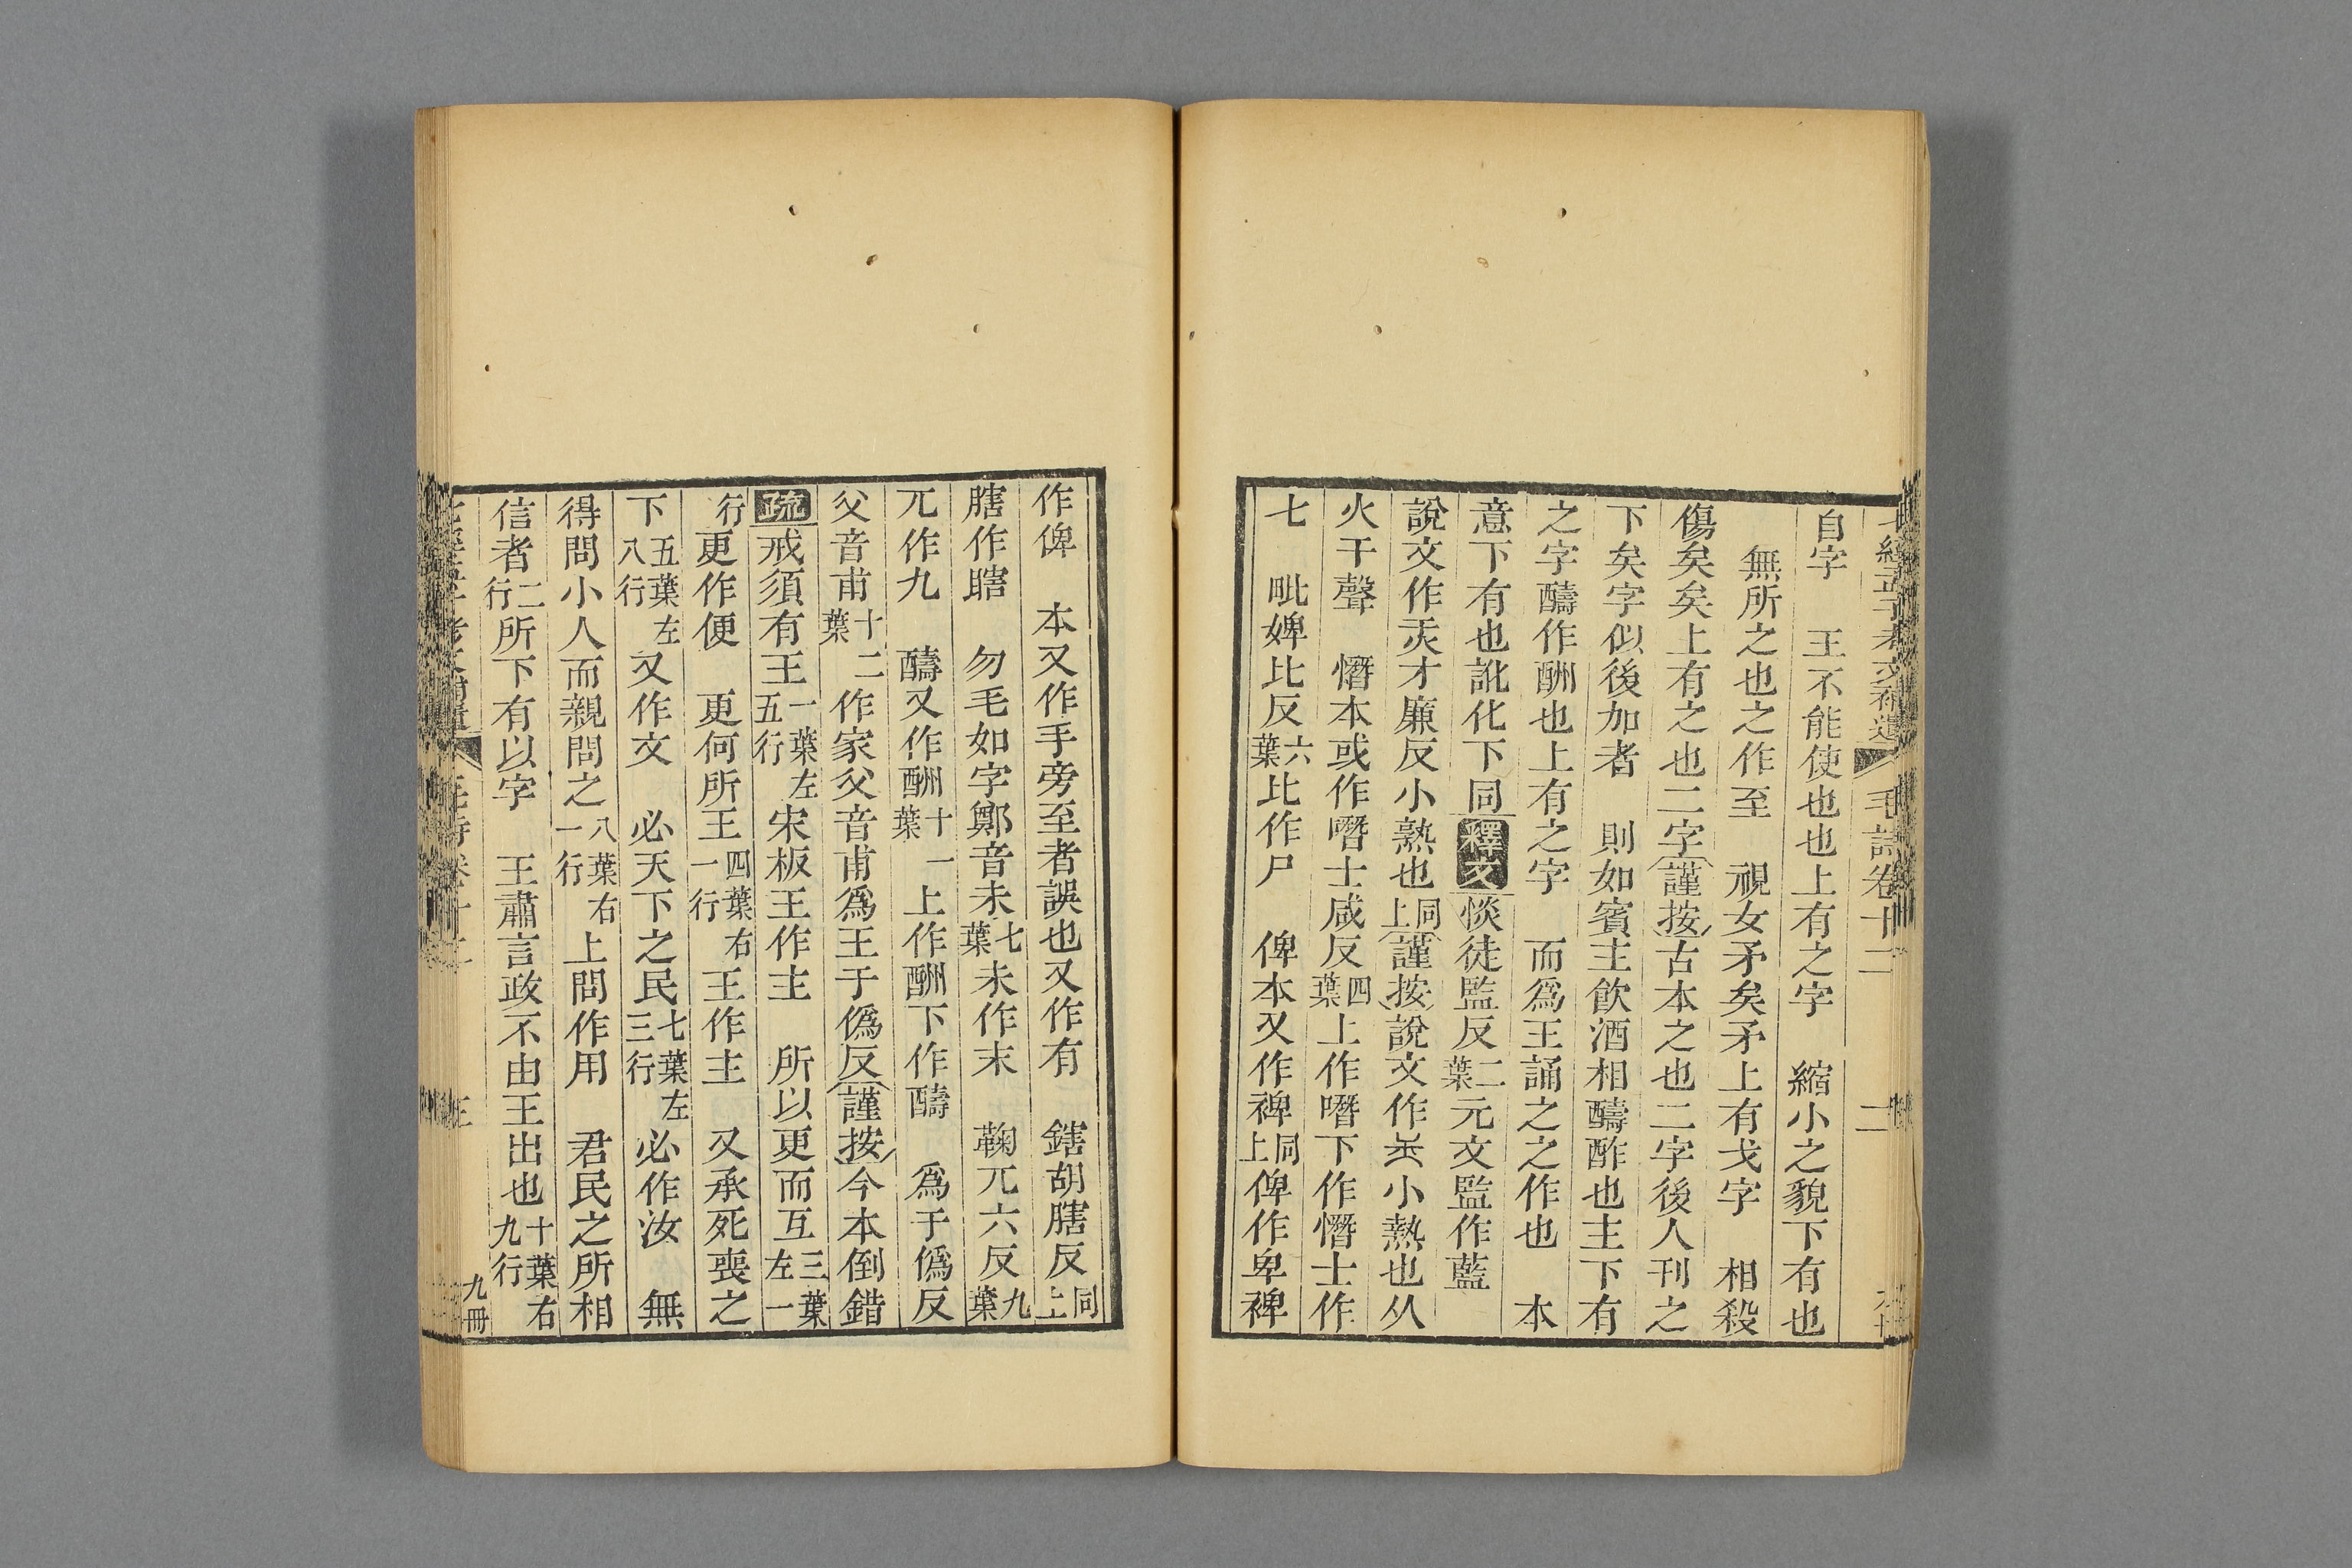 經孟子考文補遺 毛詩卷十二 二
自字 王不能使也也上有之字 縮小之貌下有也
無所之也之作至 視女矛矣矛上有戈字 相殺
傷矣矣上有之也二字謹按古本之也二字後人刊之
下矣字似後加者 則如賓主飲酒相醻酢也主下有
之字醻作酬也上有之字 而爲王誦之之作也 本
意下有也訛化下同釋文惔徒監反二葉元文監作藍
說文作㶣才廉反小熟也同上謹按說文作𤆍小熱也从
火干聲 憯本或作噆士咸反四葉上作噆下作憯士作
七 毗婢比反六葉比作尸 俾本又作裨同上俾作卑裨
作俾 本又作手旁至者誤也又作有 鎋胡膳反同上
膳作瞎 勿毛如字鄭音未七葉未作末 鞠兀六反九葉
兀作九 醻又作酬十一葉上作酬下作醻 爲于僞反
父音甫十二葉作家父音甫爲王于僞反謹按今本倒錯
疏戒須有王一葉左五行宋板王作主 所以更而互三葉左一
行更作便 更何所王四葉右一行王作主 又承死喪之
下五葉左八行又作文 必天下之民七葉左三行必作汝 無
得問小人而親問之八葉右一行上問作用 君民之所相
信者二行所下有以字 王肅言政不由王出也十葉右九行
九冊